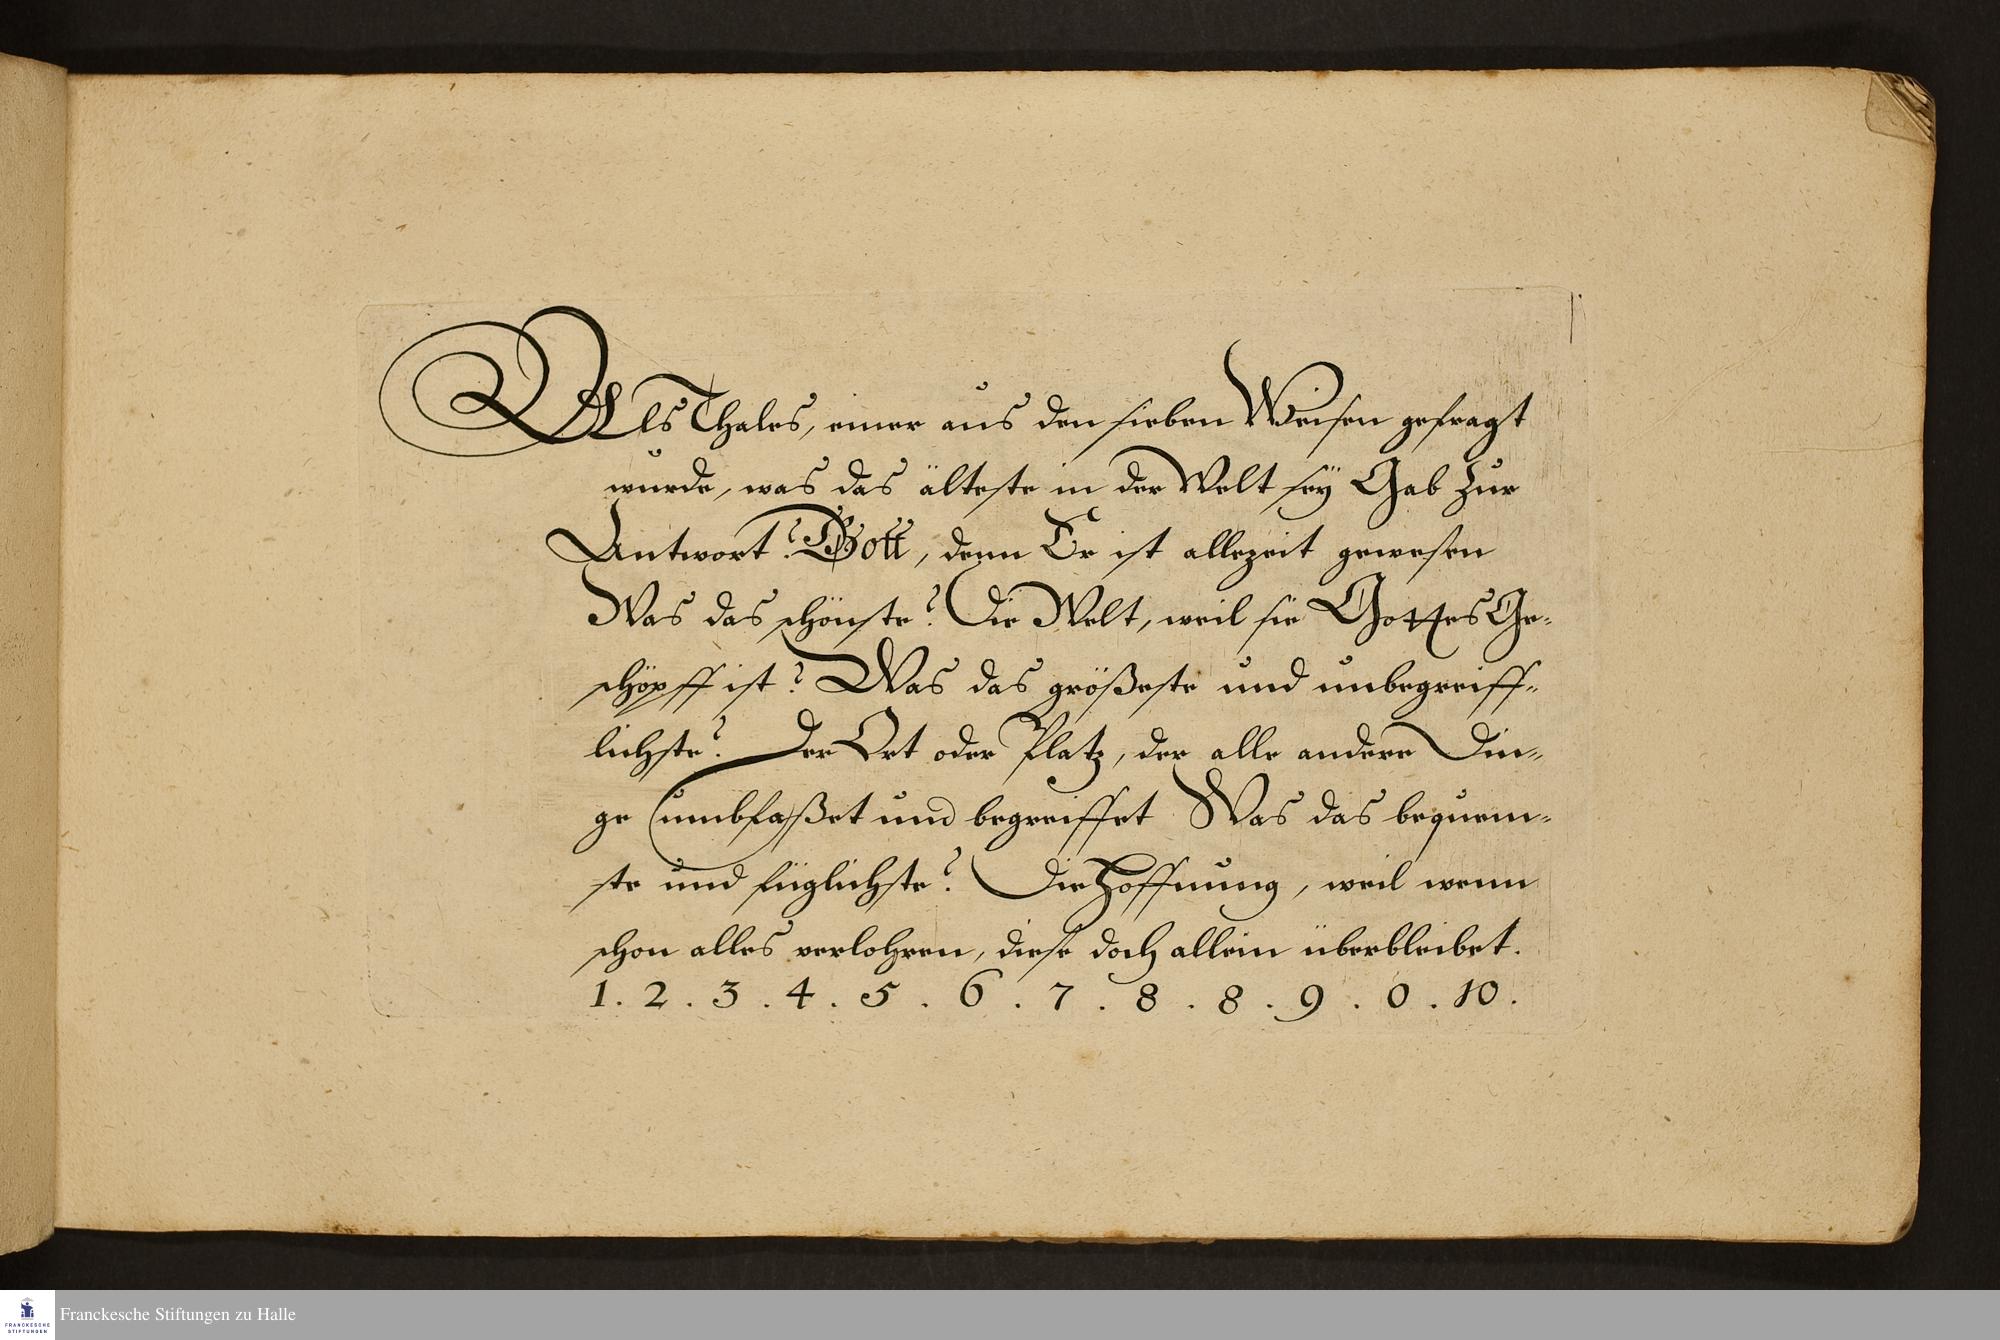 Als Thales, einer aus den sieben Weisen gefragt
wurde, was das älteste in der Welt seÿ Gab zur
Antwort? Gott, denn Er ist allezeit gewesen
Was das schönste? Die Welt, weil sie Gottes Ge-
schöpff ist? Was das größeste und unbegreiff-
lichste? Der Ort oder Platz, der alle andere Din-
ge umbfaßet und begreiffet Was das bequem-
ste und füglichste? Die Hoffnung, weil wenn
schon alles verlohren, diese doch allein überbleibet.
1. 2. 3. 4. 5. 6. 7. 8. 8. 9. 0. 10.
FRANCKESCHE
STIFTUNGEN
Franckesche Stiftungen zu Halle